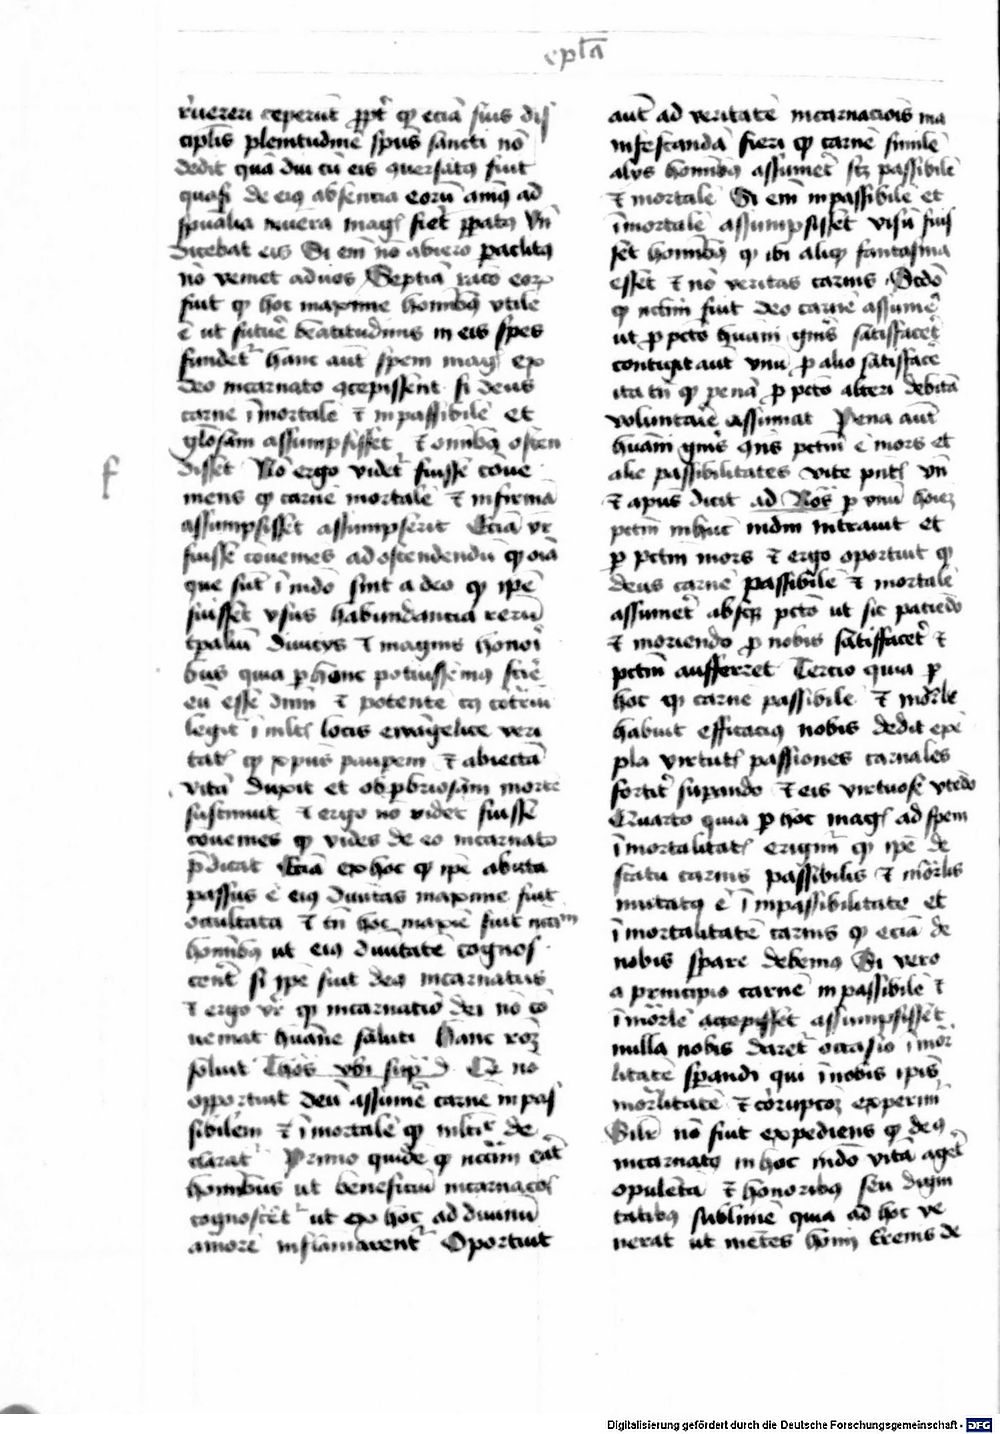 epla
rueren ceperut ppt qp ecia suis dis
ciplis plenitudine spus sancti no
dedit qua diu cu eis quersatq fuit
quasi de eiq absencia eoru amq ad
spualia mag fiet ppatq Un
Dicebat eis Si em no abiero paclitq
no veniet ad vos Septia raco eoru
fuit qp hoc maxime hominibq vtile
e ut future beatitudinis in eis spes
fundet hanc aut spem mag ex
deo incarnato qcepissent si deus
carne imortale et inpassibile et
glosam assumpsisset et omnibq osten
disset No ergo videt fuisse coue
niens qp carne mortale et infirma
assumpsisset assumpserit Ecia vr
fuisse coueniens ad ostendendu qp oia
que sut i mdo sint a deo qp ipe
fuisset vsus habundancia reru
tpaliu diuicys et magnis honoi
bus quia p hanc potuissemq scire
eu esse dnm et potente
legit i mltis locis ewagelice veri
tatis qp xpus paupem et abiecta
vita duxit et obprobriosam morte
sustinuit et ergo no videt fuisse
coueniens qp vides de eo incarnato
pdicat Ecia ex hoc qp ipe abiecta
passus e eiq diuitas maxime fuit
occultata et tn hoc maxie fuit nccm
hominibq ut eiq diuitate cognos
cent si ipe fuit deq incarnatus
et ergo vr qp incarnatio dei no co
ueniat huane saluti Hanc roz
soluit Thos vbi sup d Q no
opportuit deu assume carne inpas
sibilem et imortale qp mltis de
clarat Primo quide qp nccm eat
hominibus ut beneficiu incarnacois
cognoscet ut ex hoc ad diuinu
amore inflamarent Oportuit
aut ad veritate incarnaciois ma
nifestanda fieri qp carne simile
alys hominibq assumet scz passibile
et mortale Si em inpassibile et
imortale assumpsisset visu fuis
set hominibq qp ibi aliqp fantasma
esset et no veritas carnis Scdo
qp nctm fuit deo carne assume
ut p pcto huani gnis satisfacet
contigit aut vnu p alio satisface
ita tn qp pena p pcto alteri debita
voluntarie assumat Pena aut
huani gnis qns pctm e mors et
alie passibilitates vite pntis vn
et apus dicit ad Ros p vnu hoiez
pctm in hunc mdm intrauit et
p pctm mors et ergo oportuit qp
deus carne passibile et mortale
assumet absqz pcto ut sic patiedo
et moriendo p nobis satisfacet et
pctm aufferret Tercio quia p
hoc qp carne passibile et morle
habuit efficaciq nobis dedit exe
pla virtutis passiones carnales
fortit supando et eis virtuose vtedo
Quarto quia p hoc magis ad spem
imortalitatis erigim qp ipe de
statu carnis passibilis et morlis
mutatq e i inpassibilitate et
imortalitate carnis qp ecia de
nobis spare debemq Si vero
a principio carne inpassibile et
imorle accepisset assumpsisset
nulla nobis daret occasio imor
litate spandi qui i nobis ipis
morlitate et corupcoz experim
Silr no fuit expediens qp deq
incarnatq in hoc mdo vita aget
opulenta et honoribq seu digni
tatibq sublime quia ad hoc ve
nerat ut metes homi terenis de
Digitalisierung gefördert durch die Deutsche Forschungsgemeinschaft - DFG